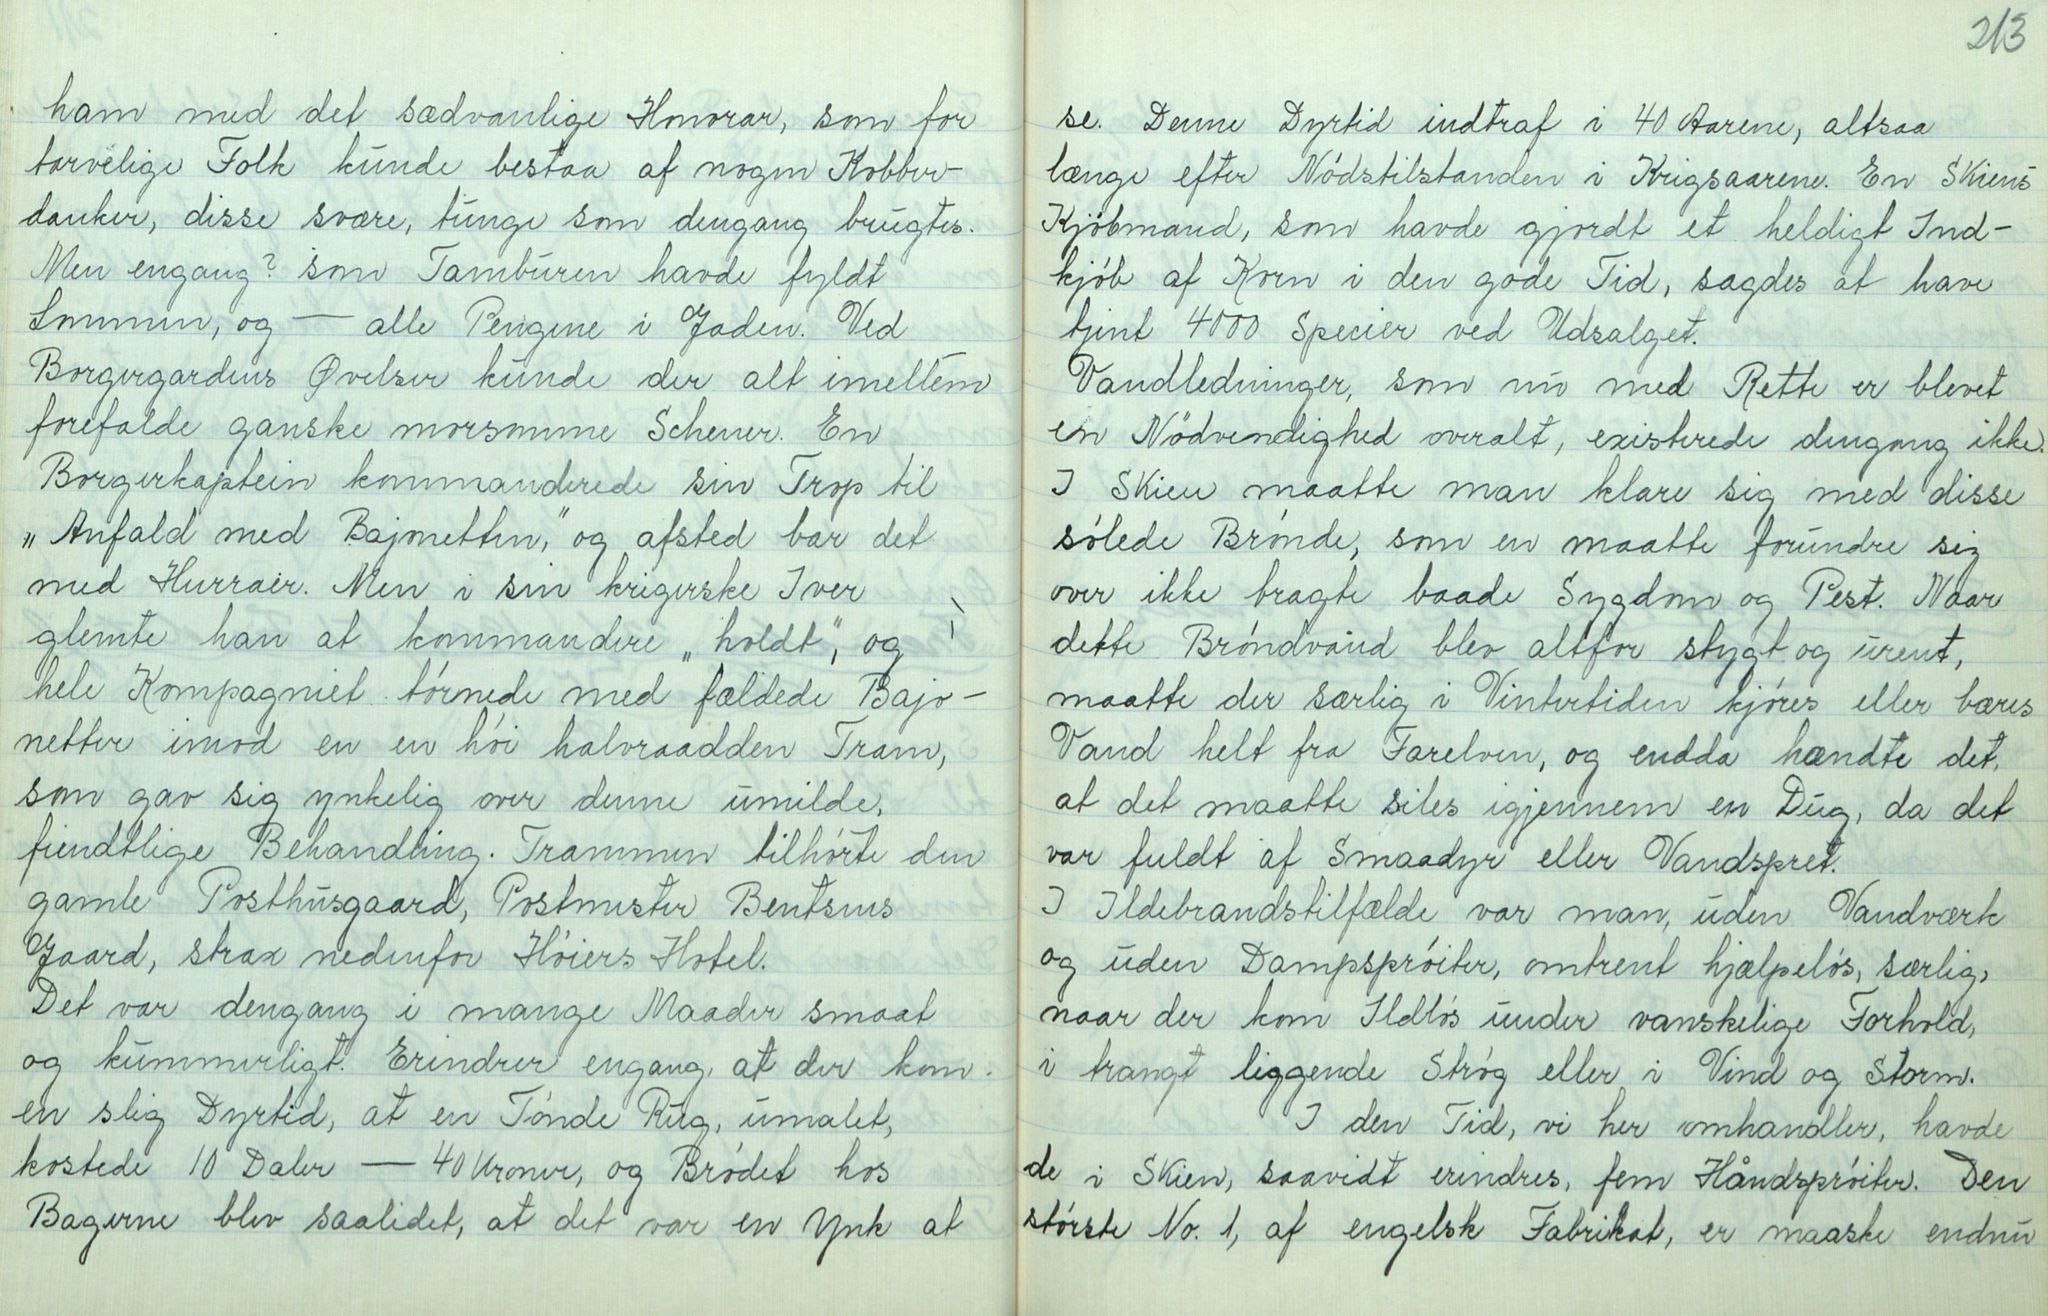 ham med det sædvanlige Honorar, som for
tarvelige Folk kunde bestaa af nogen Kobber-
danker, disse svære, tunge som dengang brugtes.
Men engang? som Tambúren havde fyldt
Lommen, og — alle Pengene i Gaden. Ved
Borgergardens Øvelser kunde der alt imellem
forefalde ganske morsomme Scener. En
Borgerkaptein kommanderede sin Trop til
„Anfald med Bajonetten,” og afsted bar det
med Hurraer. Men i sin krigerske Iver
glemte han at kommandere „holdt”, og
hele Kompagniet tórnede med fældede Bajo-
netter imod en en hói halvraadden Tram,
som gav sig ynkelig over denne umilde,
fiendtlige Behandling. Trammen tilhórte den
gamle Posthusgaard, Postmester Bentsens
Gaard, strax nedenfor Hóiers Hotel.
Det var dengang i mange Maader smaat
og kummerligt. Erindrer engang, at der kom
en slig Dyrtid, at en Tónde Rug, umalet,
kostede 10 Daler — 40 Kroner, og Bródet hos
Bagerne blev saalidet, at det var en Ynk at
213
se. Denne Dyrtid indtraf i 40 Aarene, altsaa
længe efter Nódstilstanden i Krigsaarene. En Skiens
Kjóbmand, som havde gjordt et heldigt Ind-
kjób af Korn i den gode Tid, sagdes at have
tjent 4000 Specier ved Udsalget.
Vandledninger, som nu med Rette er blevet
en Nödvendighed overalt, existerede dengang ikke.
I Skien maatte man klare sig med disse
sólede Brónde, som en maatte forundre sig
over ikke bragte baade Sygdom og Pest. Naar
dette Bróndvand blev altfor stygt og urent,
maatte der særlig i Vintertiden kjóres eller bæres
Vand helt fra Farelven, og endda hændte det,
at det maatte siles igjennem en Dug, da det
var fuldt af Smaadyr eller Vandspret.
I Ildebrandstilfælde var man, uden Vandværk
og uden Dampspróiter, omtrent hjælpelós, særlig,
naar der kom Ildlós under vanskelige Forhold,
i trangt liggende Stróg eller i Vind og Storm.
I den Tid, vi her omhandler, havde
de i Skien, saavidt erindres, fem Håndspróiter. Den
stórste No. 1, af engelsk Fabrikat, er maaske endnu